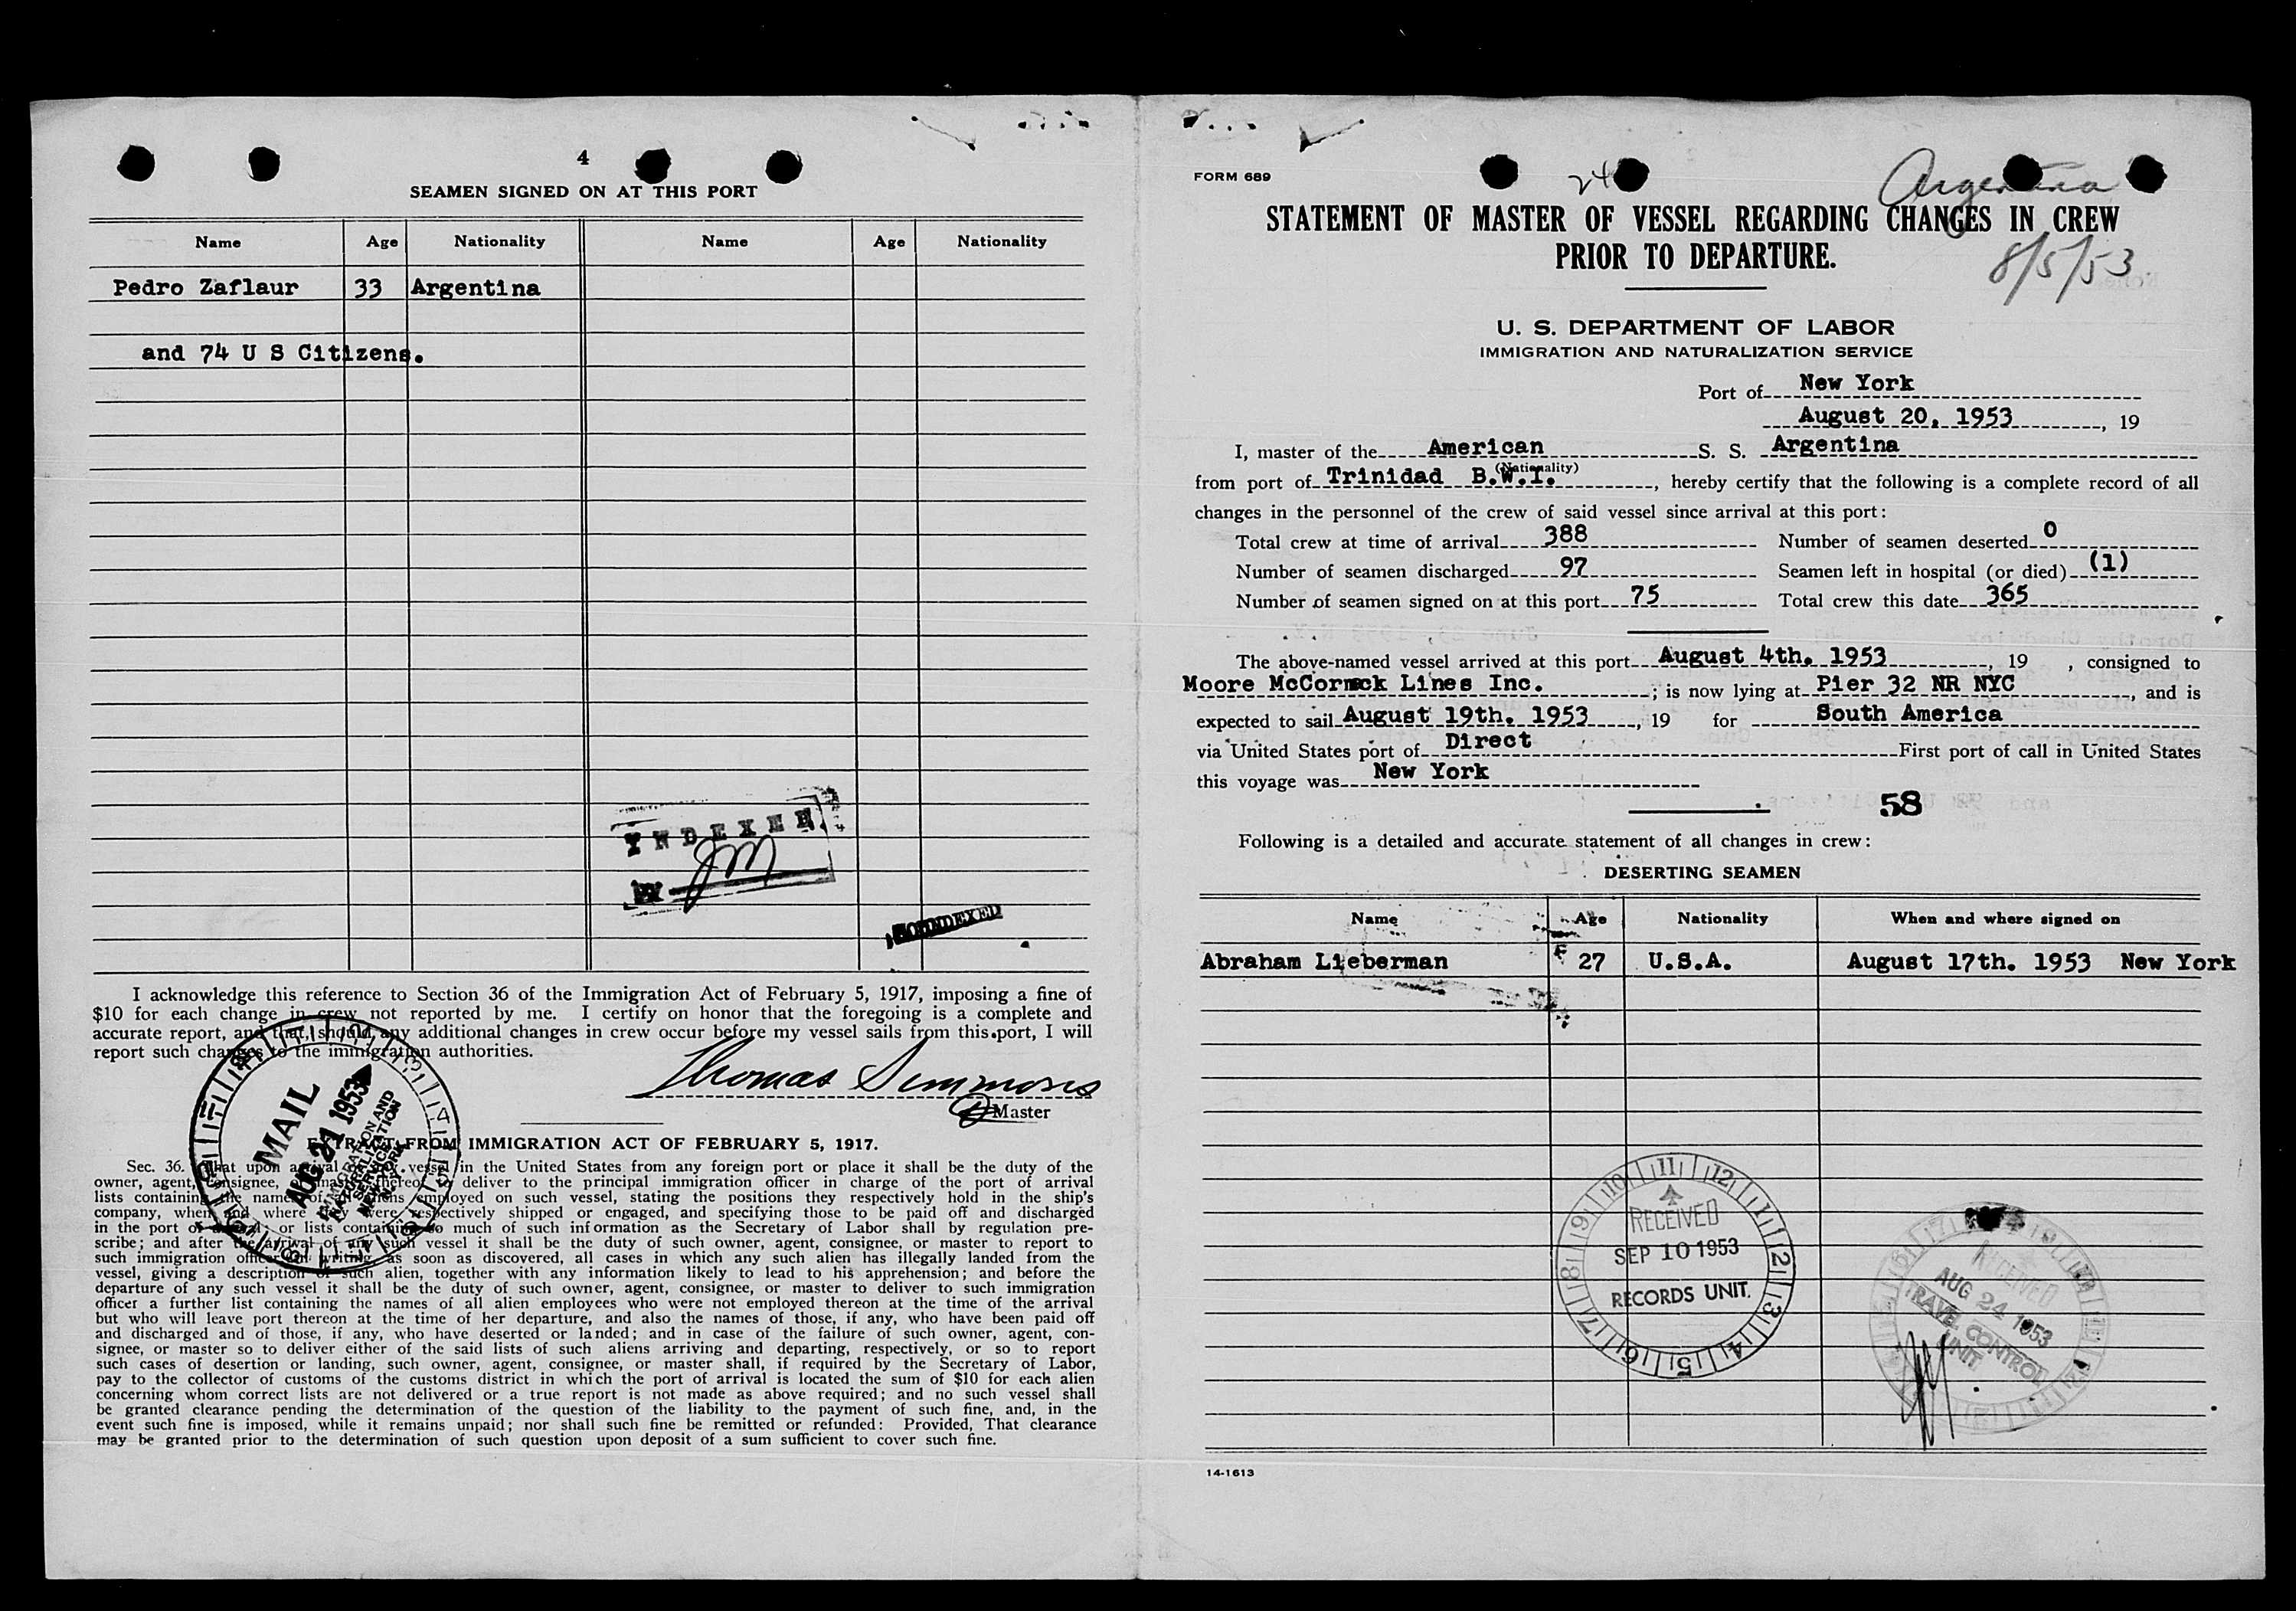 4
SEAMEN SIGNED ON AT THIS PORT
Name Age Nationality Name Age Nationality
Pedro Zaflaur 33 Argentina
and 74 U S Citizens.
INDEXED
BY JM
I acknowledge this reference to Section 36 of the Immigration Act of February 5, 1917, imposing a fine of
$10 for each change in crew not reported by me. I certify on honor that the foregoing is a complete and
accurate report, and that, should any additional changes in crew occur before my vessel sails from this port, I will
report such changes to the immigration authorities.
Thomas Simmons
Master
MAIL
AUG 21 1953
IMMIGRATION AND
NATURALIZATION
SERVICE
NEW YORK
N.Y.
EXTRACT FROM IMMIGRATION ACT OF FEBRUARY 5, 1917.
Sec. 36. That upon arrival of any vessel in the United States from any foreign port or place it shall be the duty of the
owner, agent, consignee, or master thereof to deliver to the principal immigration officer in charge of the port of arrival
lists containing the names of all aliens employed on such vessel, stating the positions they respectively hold in the ship's
company, when and where they were respectively shipped or engaged, and specifying those to be paid off and discharged
in the port of arrival; or lists containing so much of such information as the Secretary of Labor shall by regulation pre-
scribe; and after the arrival of any such vessel it shall be the duty of such owner, agent, consignee, or master to report to
such immigration officer, in writing, as soon as discovered, all cases in which any such alien has illegally landed from the
vessel, giving a description of such alien, together with any information likely to lead to his apprehension; and before the
departure of any such vessel it shall be the duty of such owner, agent, consignee, or master to deliver to such immigration
officer a further list containing the names of all alien employees who were not employed thereon at the time of the arrival
but who will leave port thereon at the time of her departure, and also the names of those, if any, who have been paid off
and discharged and of those, if any, who have deserted or landed; and in case of the failure of such owner, agent, con-
signee, or master so to deliver either of the said lists of such aliens arriving and departing, respectively, or so to report
such cases of desertion or landing, such owner, agent, consignee, or master shall, if required by the Secretary of Labor,
pay to the collector of customs of the customs district in which the port of arrival is located the sum of $10 for each alien
concerning whom correct lists are not delivered or a true report is not made as above required; and no such vessel shall
be granted clearance pending the determination of the question of the liability to the payment of such fine, and, in the
event such fine is imposed, while it remains unpaid; nor shall such fine be remitted or refunded: Provided, That clearance
may be granted prior to the determination of such question upon deposit of a sum sufficient to cover such fine.
FORM 689
24
Argentina
STATEMENT OF MASTER OF VESSEL REGARDING CHANGES IN CREW
PRIOR TO DEPARTURE.
8/5/53
U. S. DEPARTMENT OF LABOR
IMMIGRATION AND NATURALIZATION SERVICE
Port of New York
August 20, 1953, 19
I, master of the American S. S. Argentina
(Nationality)
from port of Trinidad B.W.I., hereby certify that the following is a complete record of all
changes in the personnel of the crew of said vessel since arrival at this port:
Total crew at time of arrival 388 Number of seamen deserted 0
Number of seamen discharged 97 Seamen left in hospital (or died) (1)
Number of seamen signed on at this port 75 Total crew this date 365
The above-named vessel arrived at this port August 4th. 1953, 19 , consigned to
Moore McCormack Lines Inc. ; is now lying at Pier 32 NR NYC, and is
expected to sail August 19th. 1953, 19 for South America
via United States port of Direct First port of call in United States
this voyage was New York
58
Following is a detailed and accurate statement of all changes in crew:
DESERTING SEAMEN
Name Age Nationality When and where signed on
Abraham Lieberman 27 U.S.A. August 17th. 1953 New York
RECEIVED
SEP 10 1953
RECORDS UNIT.
RECEIVED
AUG 24 1953
TRAVEL CONTROL
UNIT
14-1613